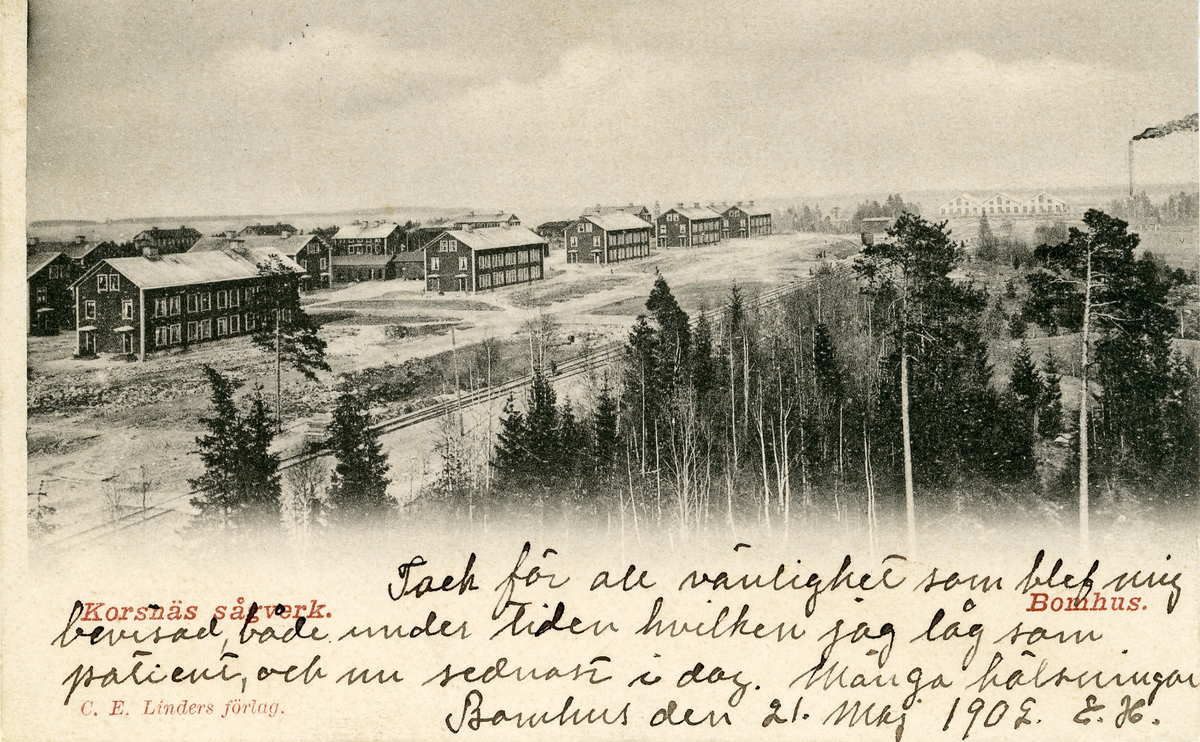 Tack för all vänlighet som blef mig
Korsnäs sågverk.
Bomhus.
bevisad, både under tiden hvilken jag låg som
patient, och nu sednast i dag. Många hälsningar
C. E. Linders förlag.
Bomhus den 21. Maj 1902. E. H.